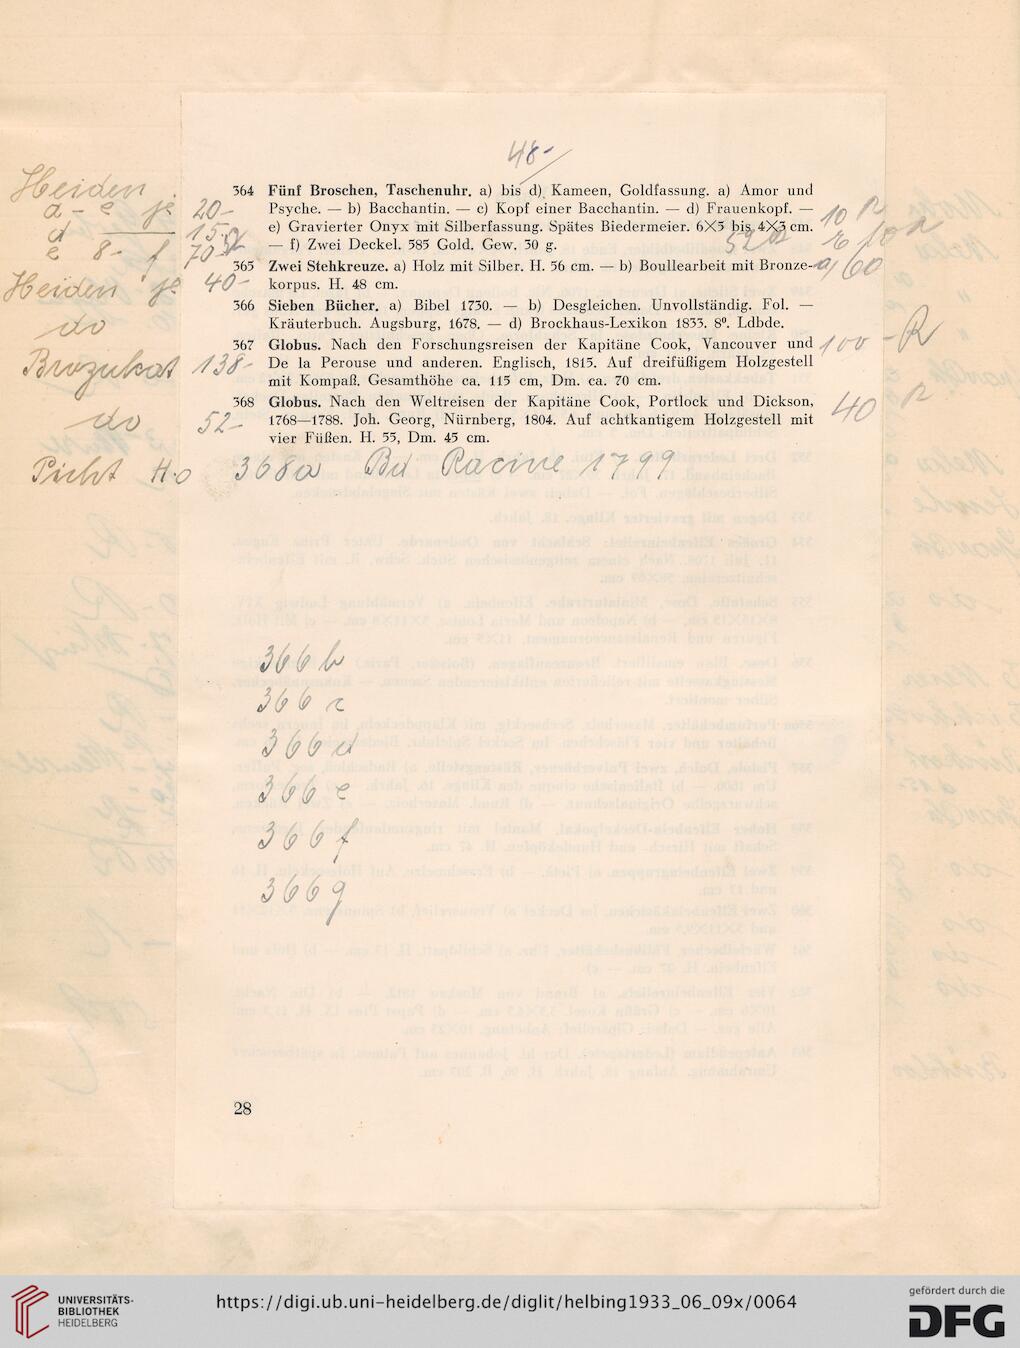 48-
Heiden
a - e je 20-
d 15-
e 8- f 70-
Heiden je 40-
do
Brozukat 138-
do 52-
Picht H.o
364 Fünf Broschen, Taschenuhr. a) bis d) Kameen, Goldfassung. a) Amor und
Psyche. — b) Bacchantin. — c) Kopf einer Bacchantin. — d) Frauenkopf. —
e) Gravierter Onyx mit Silberfassung. Spätes Biedermeier. 6×5 bis 4×3 cm.
— f) Zwei Deckel. 585 Gold. Gew. 30 g.
365 Zwei Stehkreuze. a) Holz mit Silber. H. 56 cm. — b) Boullearbeit mit Bronze-
korpus. H. 48 cm.
366 Sieben Bücher. a) Bibel 1730. — b) Desgleichen. Unvollständig. Fol. —
Kräuterbuch. Augsburg, 1678. — d) Brockhaus-Lexikon 1833. 8⁰. Ldbde.
367 Globus. Nach den Forschungsreisen der Kapitäne Cook, Vancouver und
De la Perouse und anderen. Englisch, 1815. Auf dreifüßigem Holzgestell
mit Kompaß. Gesamthöhe ca. 115 cm, Dm. ca. 70 cm.
368 Globus. Nach den Weltreisen der Kapitäne Cook, Portlock und Dickson,
1768—1788. Joh. Georg, Nürnberg, 1804. Auf achtkantigem Holzgestell mit
vier Füßen. H. 55, Dm. 45 cm.
10 R
a) 60
100 - R
40 R
368a Bd Racine 1799
366 b
366 c
366 d
366 e
366 f
366 g
28
UNIVERSITÄTS-
BIBLIOTHEK
HEIDELBERG
https://digi.ub.uni-heidelberg.de/diglit/helbing1933_06_09x/0064
gefördert durch die
DFG